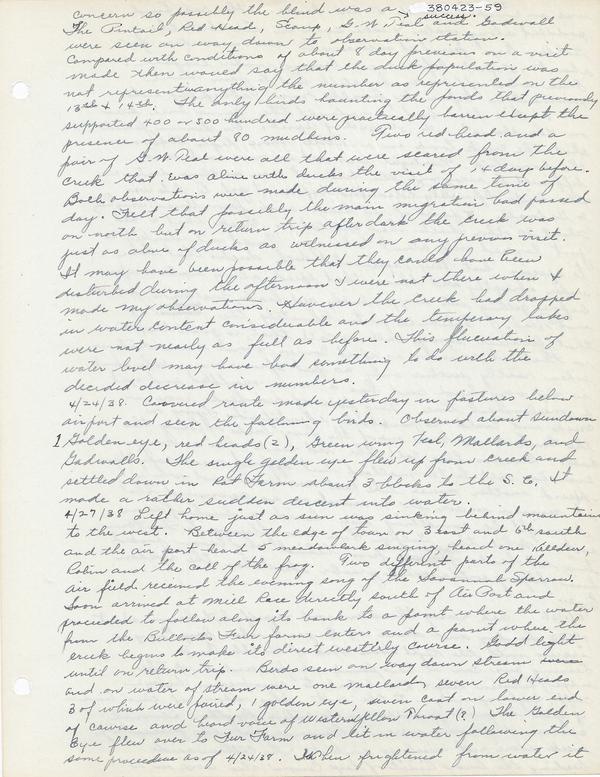 380423-59
concern so possibly the blind was a success.
The Pintail, Red Head, Scaup, G.W. Teal and Gadwall
were seen on way down to observation station.
Compared with conditions of about 8 day previous on a visit
made then would say that the duck population was
not representanything the number as represented on the
13th & 14th. The only birds haunting the ponds that previously
supported 400 or 500 hundred were practically barren except the
presence of about 80 mudhens. Two red head and a
pair of G.W. Teal were all that were scared from the
creek that was alive with ducks the visit of 14 day before.
Both observations were made during the same time of
day. Felt that possibly the main migration had passed
on north but on return trip after dark the creek was
just as alive of ducks as witnessed on any previous visit.
It may have been possible that they could have been
disturbed during the afternoon & were not there when I
made my observations. However the creek had dropped
in water content considerable and the temporary lakes
were not nearly as full as before. This flucuation of
water level may have had something to do with the
decided decrease in numbers.
4/24/38. Covered route made yesterday in pastures below
airport and seen the following birds. Observed about sundown
1 Golden eye, red heads (2), Green wing Teal, Mallards, and
Gadwalls. The single golden eye flew up from creek and
settled down in Rat Farm about 3 blocks to the S.E. It
made a rather sudden descent into water.
4/27/38 Left home just as sun was sinking behind mountains
to the west. Between the edge of town on 3 east and 6th south
and the air port heard 5 meadowlark singing, heard one Killdeer,
Robin and the call of the frog. Two different parts of the
air field received the evening song of the Savannah Sparrow.
Soon arrived at Mill Race directly south of Air Port and
proceeded to follow along its bank to a point where the water
from the Bullocks Fur farm enters and a point where the
creek begins to make its direct westerly course. Good light
until on return trip. Birds seen on way down stream were
and on water of stream were one mallard, seven Red Heads
3 of which were paired, 1 golden eye, seven coot on lower end
of course and heard voice of Western Yellow Throat (?) The Golden
Eye flew over to Fur Farm and lit in water following the
same procedure as of 4/24/38. When frightened from water it